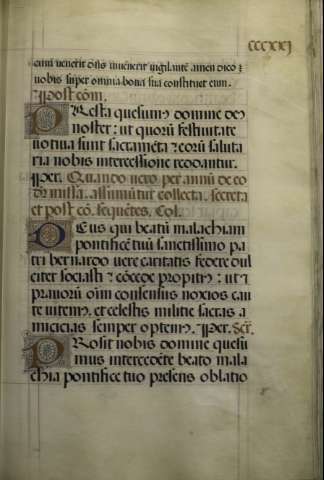 ccccxxj
cum venerit dñs invenerit vigilantẽ amen dico
vobis super omnia bona sua constituet eum.
Post cõm.
PResta quesumus domine deus
noster: ut quorũ festivitate
votiva sunt sacramẽta eorũ saluta
ria nobis intercessione reddantur.
Per. Quando vero per annũ de eo
dẽ missa. assumũtur collecta. secreta
et post cõ. sequẽtes. Col.
DEus qui beatũ malachiam
pontificẽ tuũ sanctissimo pa
tri bernardo vere caritatis federe dul
citer sociasti: cõcede propitius: ut
pravorũ oĩm consensus noxios cau
te vitem, et celestis militie sacras a
micicias semper optem. Per. Scr.
PRosit nobis domine quesu
mus intercedẽte beato mala
chia pontifice tuo presens oblatio